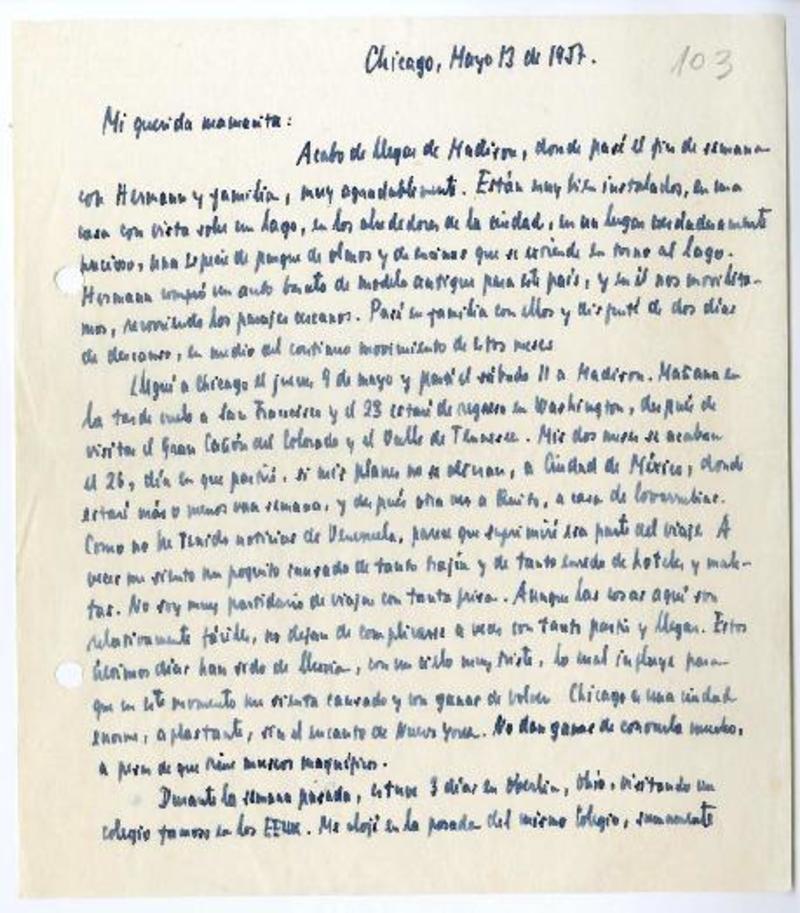 Chicago, Mayo 13 de 1957.
103
Mi querida mamacita:
Acabo de llegar de Madison, donde pasé el fin de semana
con Hermann y familia, muy agradablemente. Están muy bien instalados, en una
casa con vista sobre un lago, en los alrededores de la ciudad, en un lugar verdaderamente
precioso, una especie de parque de olmos y de encinas que se extiende en torno al lago.
Hermann compró un auto barato de modelo antiguo para este país, y en él nos moviliza-
mos, recorriendo los parajes cercanos. Pasé en familia con ellos y disfruté de dos días
de descanso, en medio del continuo movimiento de estos meses
Llegué a Chicago el jueves 9 de mayo y pasé el sábado 11 a Madison. Mañana en
la tarde vuelo a San Francisco y el 23 estaré de regreso en Washington, después de
visitar el Gran Cañón del Colorado y el Valle de Tennesee. Mis dos meses se acaban
el 26, día en que partiré, si mis planes no se alteran, a Ciudad de México, donde
estaré más o menos una semana, y después otra vez a Quito, a casa de Covarrubias.
Como no he tenido noticias de Venezuela, parece que suprimiré esa parte del viaje. A
veces me siento un poquito cansado de tanto trajín y de tanto enredo de hoteles y male-
tas. No soy muy partidario de viajar con tanta prisa. Aunque las cosas aquí son
relativamente fáciles, no dejan de complicarse a veces con tanto partir y llegar. Estos
últimos días han sido de lluvia, con un cielo muy triste, lo cual influye para
que en este momento me sienta cansado y con ganas de volver. Chicago es una ciudad
enorme, aplastante, sin el encanto de Nueva York. No dan ganas de conocerla mucho,
a pesar de que tiene museos magníficos.
Durante la semana pasada, estuve 3 días en Oberlin, Ohio, visitando un
colegio famoso en los EEUU. Me alojé en la posada del mismo Colegio, sumamente